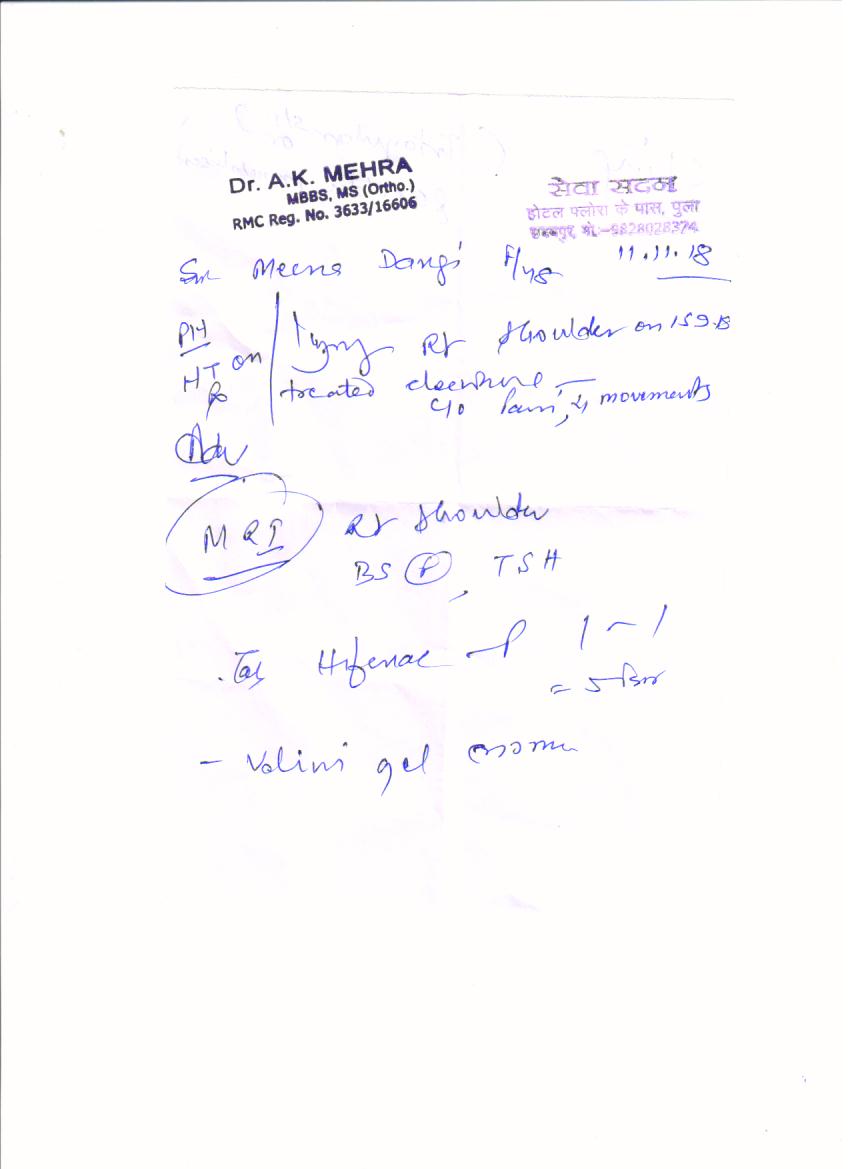 Dr. A.K. MEHRA
MBBS, MS (Ortho.)
RMC Reg. No. 3633/16606
सेवा सदन
होटल फ्लोरा के पास, पुला
मो.-9828028374
Sm Meena Dangi F/48 11.11.18
PH
HT on
Rx
Injury Rt shoulder on 15.9.18
treated elsewhere
c/o Pain, movements
Adv
MRI Rt shoulder
BS (P), TSH
Tab Hifenac-P 1-1
= 5 दिन
- Volini gel लगाना